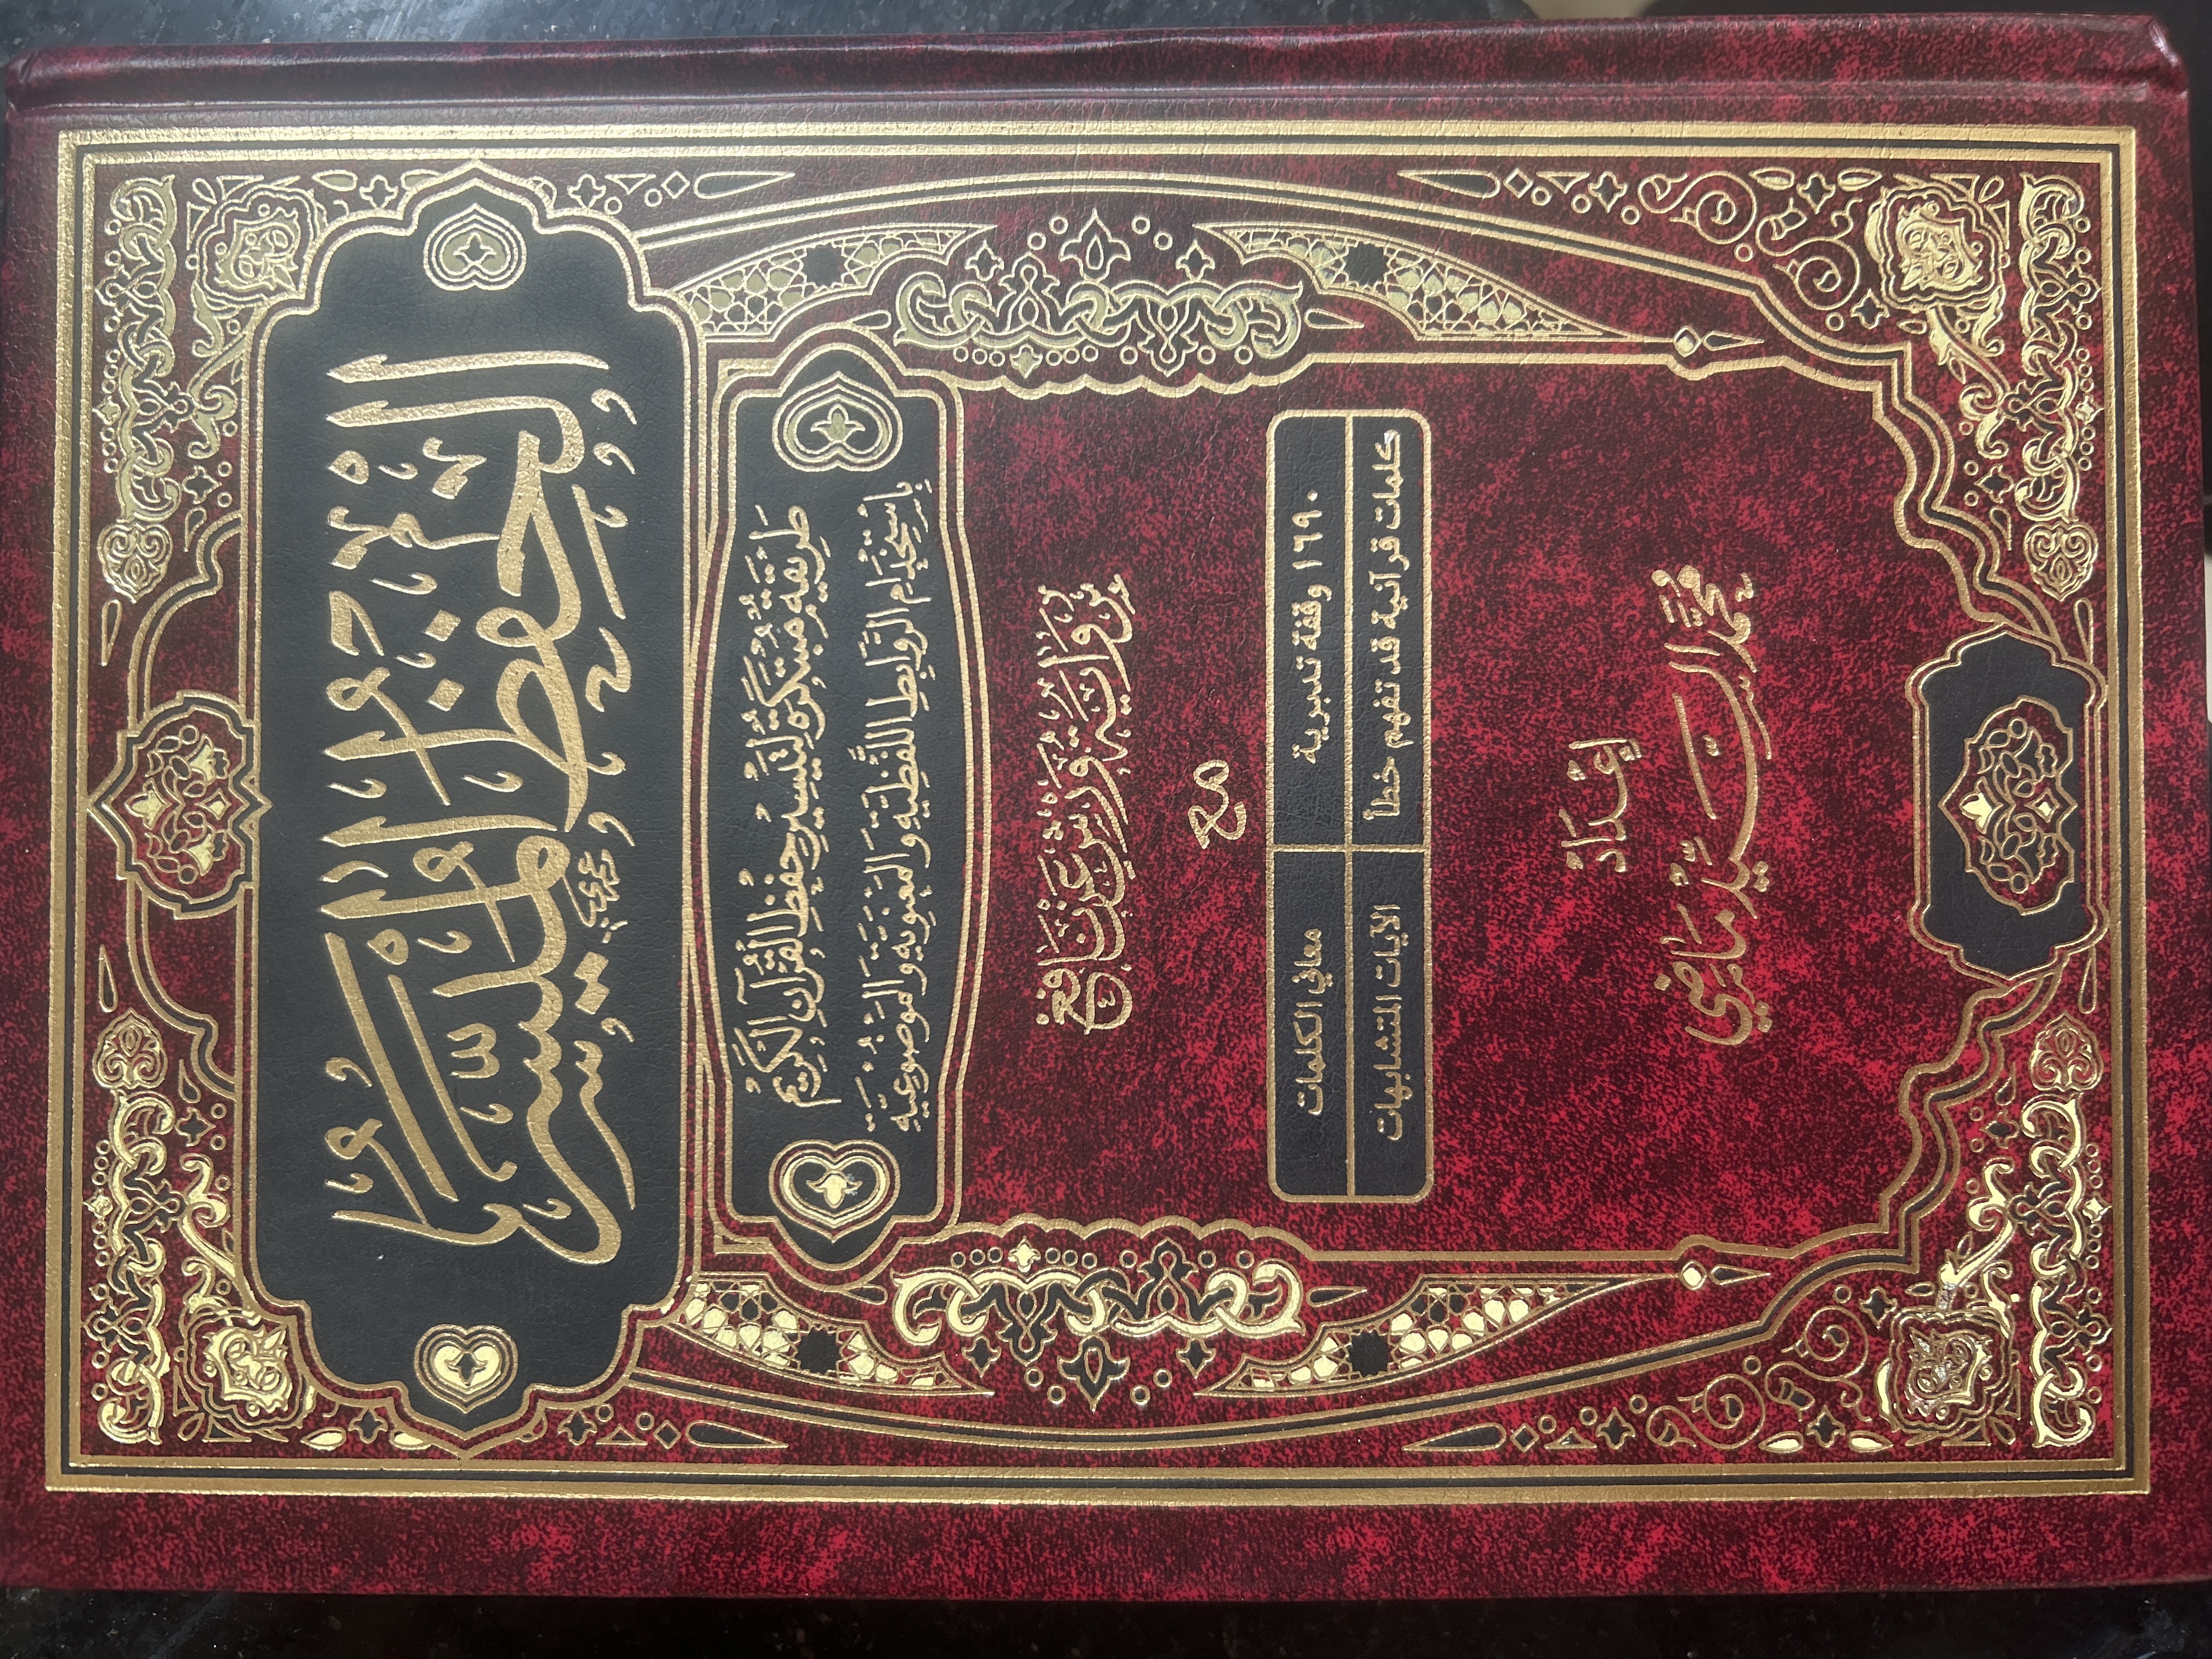 الحفظ الميسر
طَرِيقَةٌ مُبْتَكَرَةٌ لِتَيْسِيرِ حِفْظِ الْقُرْآنِ الْكَرِيمِ
بِاسْتِخْدَامِ الرَّوَابِطِ اللَّفْظِيَّةِ وَالْمَعْنَوِيَّةِ وَالْمَوْضُوعِيَّةِ
بِرِوَايَةِ وَرْشٍ عَنْ نَافِعٍ
مع
١٦٩٠ وقفة تدبرية معاني الكلمات
كلمات قرآنية قد تفهم خطأ الآيات المتشابهات
إِعْدَادُ
مُحَمَّد السَّيِّد مَاضِي